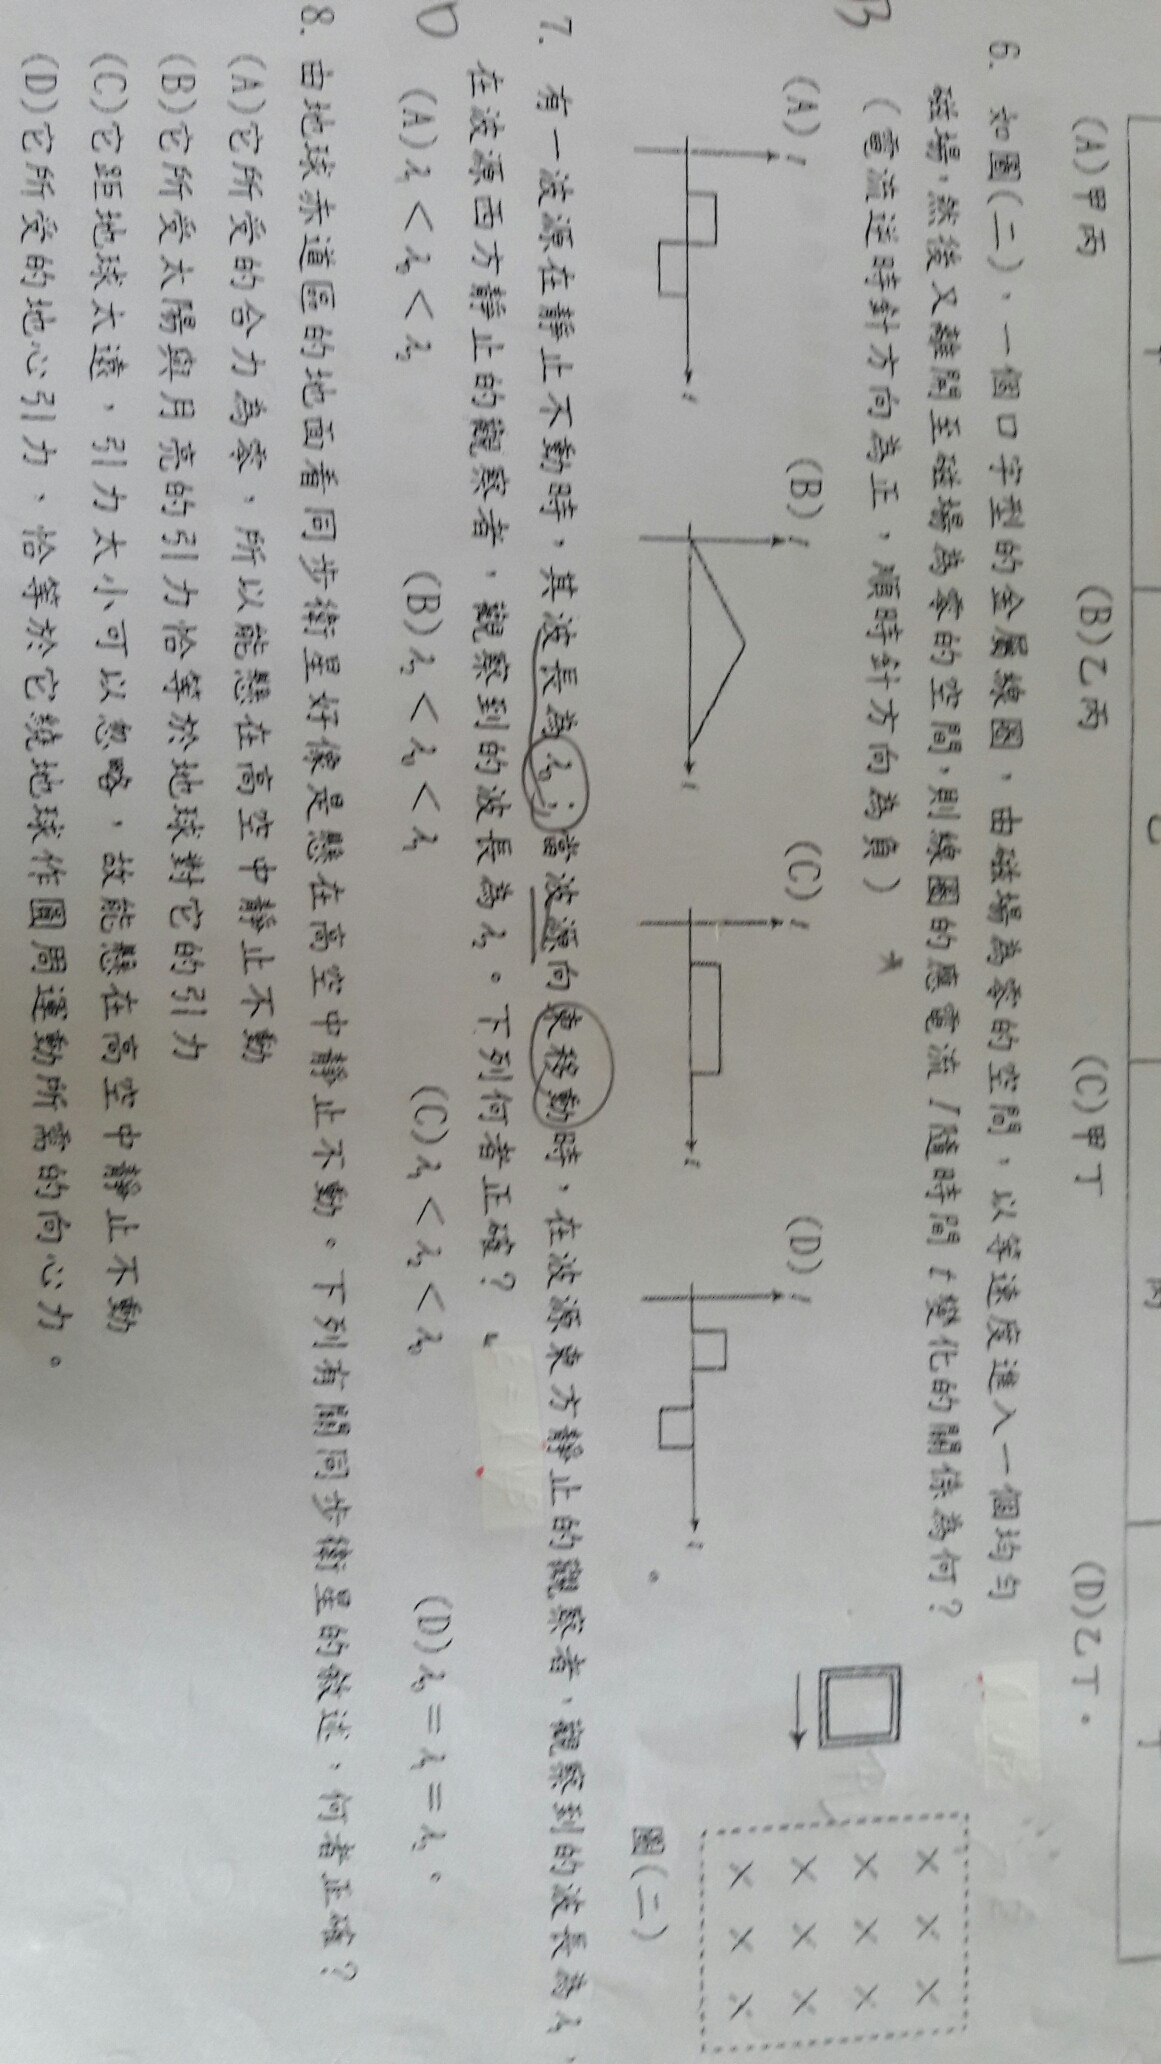 (A)甲丙 (B)乙丙 (C)甲丁 (D)乙丁。
6. 如圖(二)，一個口字型的金屬線圈，由磁場為零的空間，以等速度進入一個均勻
磁場，然後又離開至磁場為零的空間，則線圈的應電流 I 隨時間 t 變化的關係為何？
(電流逆時針方向為正，順時針方向為負)
B
(A) I t (B) I t (C) I t (D) I t 。
圖(二)
7. 有一波源在靜止不動時，其波長為λ₀；當波源向東移動時，在波源東方靜止的觀察者，觀察到的波長為λ₁，
在波源西方靜止的觀察者，觀察到的波長為λ₂。下列何者正確？
(A)λ₁＜λ₀＜λ₂ (B)λ₂＜λ₀＜λ₁ (C)λ₁＜λ₂＜λ₀ (D)λ₀＝λ₁＝λ₂。
D
8. 由地球赤道區的地面看同步衛星好像是懸在高空中靜止不動。下列有關同步衛星的敘述，何者正確？
(A)它所受的合力為零，所以能懸在高空中靜止不動
(B)它所受太陽與月亮的引力恰等於地球對它的引力
(C)它距地球太遠，引力太小可以忽略，故能懸在高空中靜止不動
(D)它所受的地心引力，恰等於它繞地球作圓周運動所需的向心力。